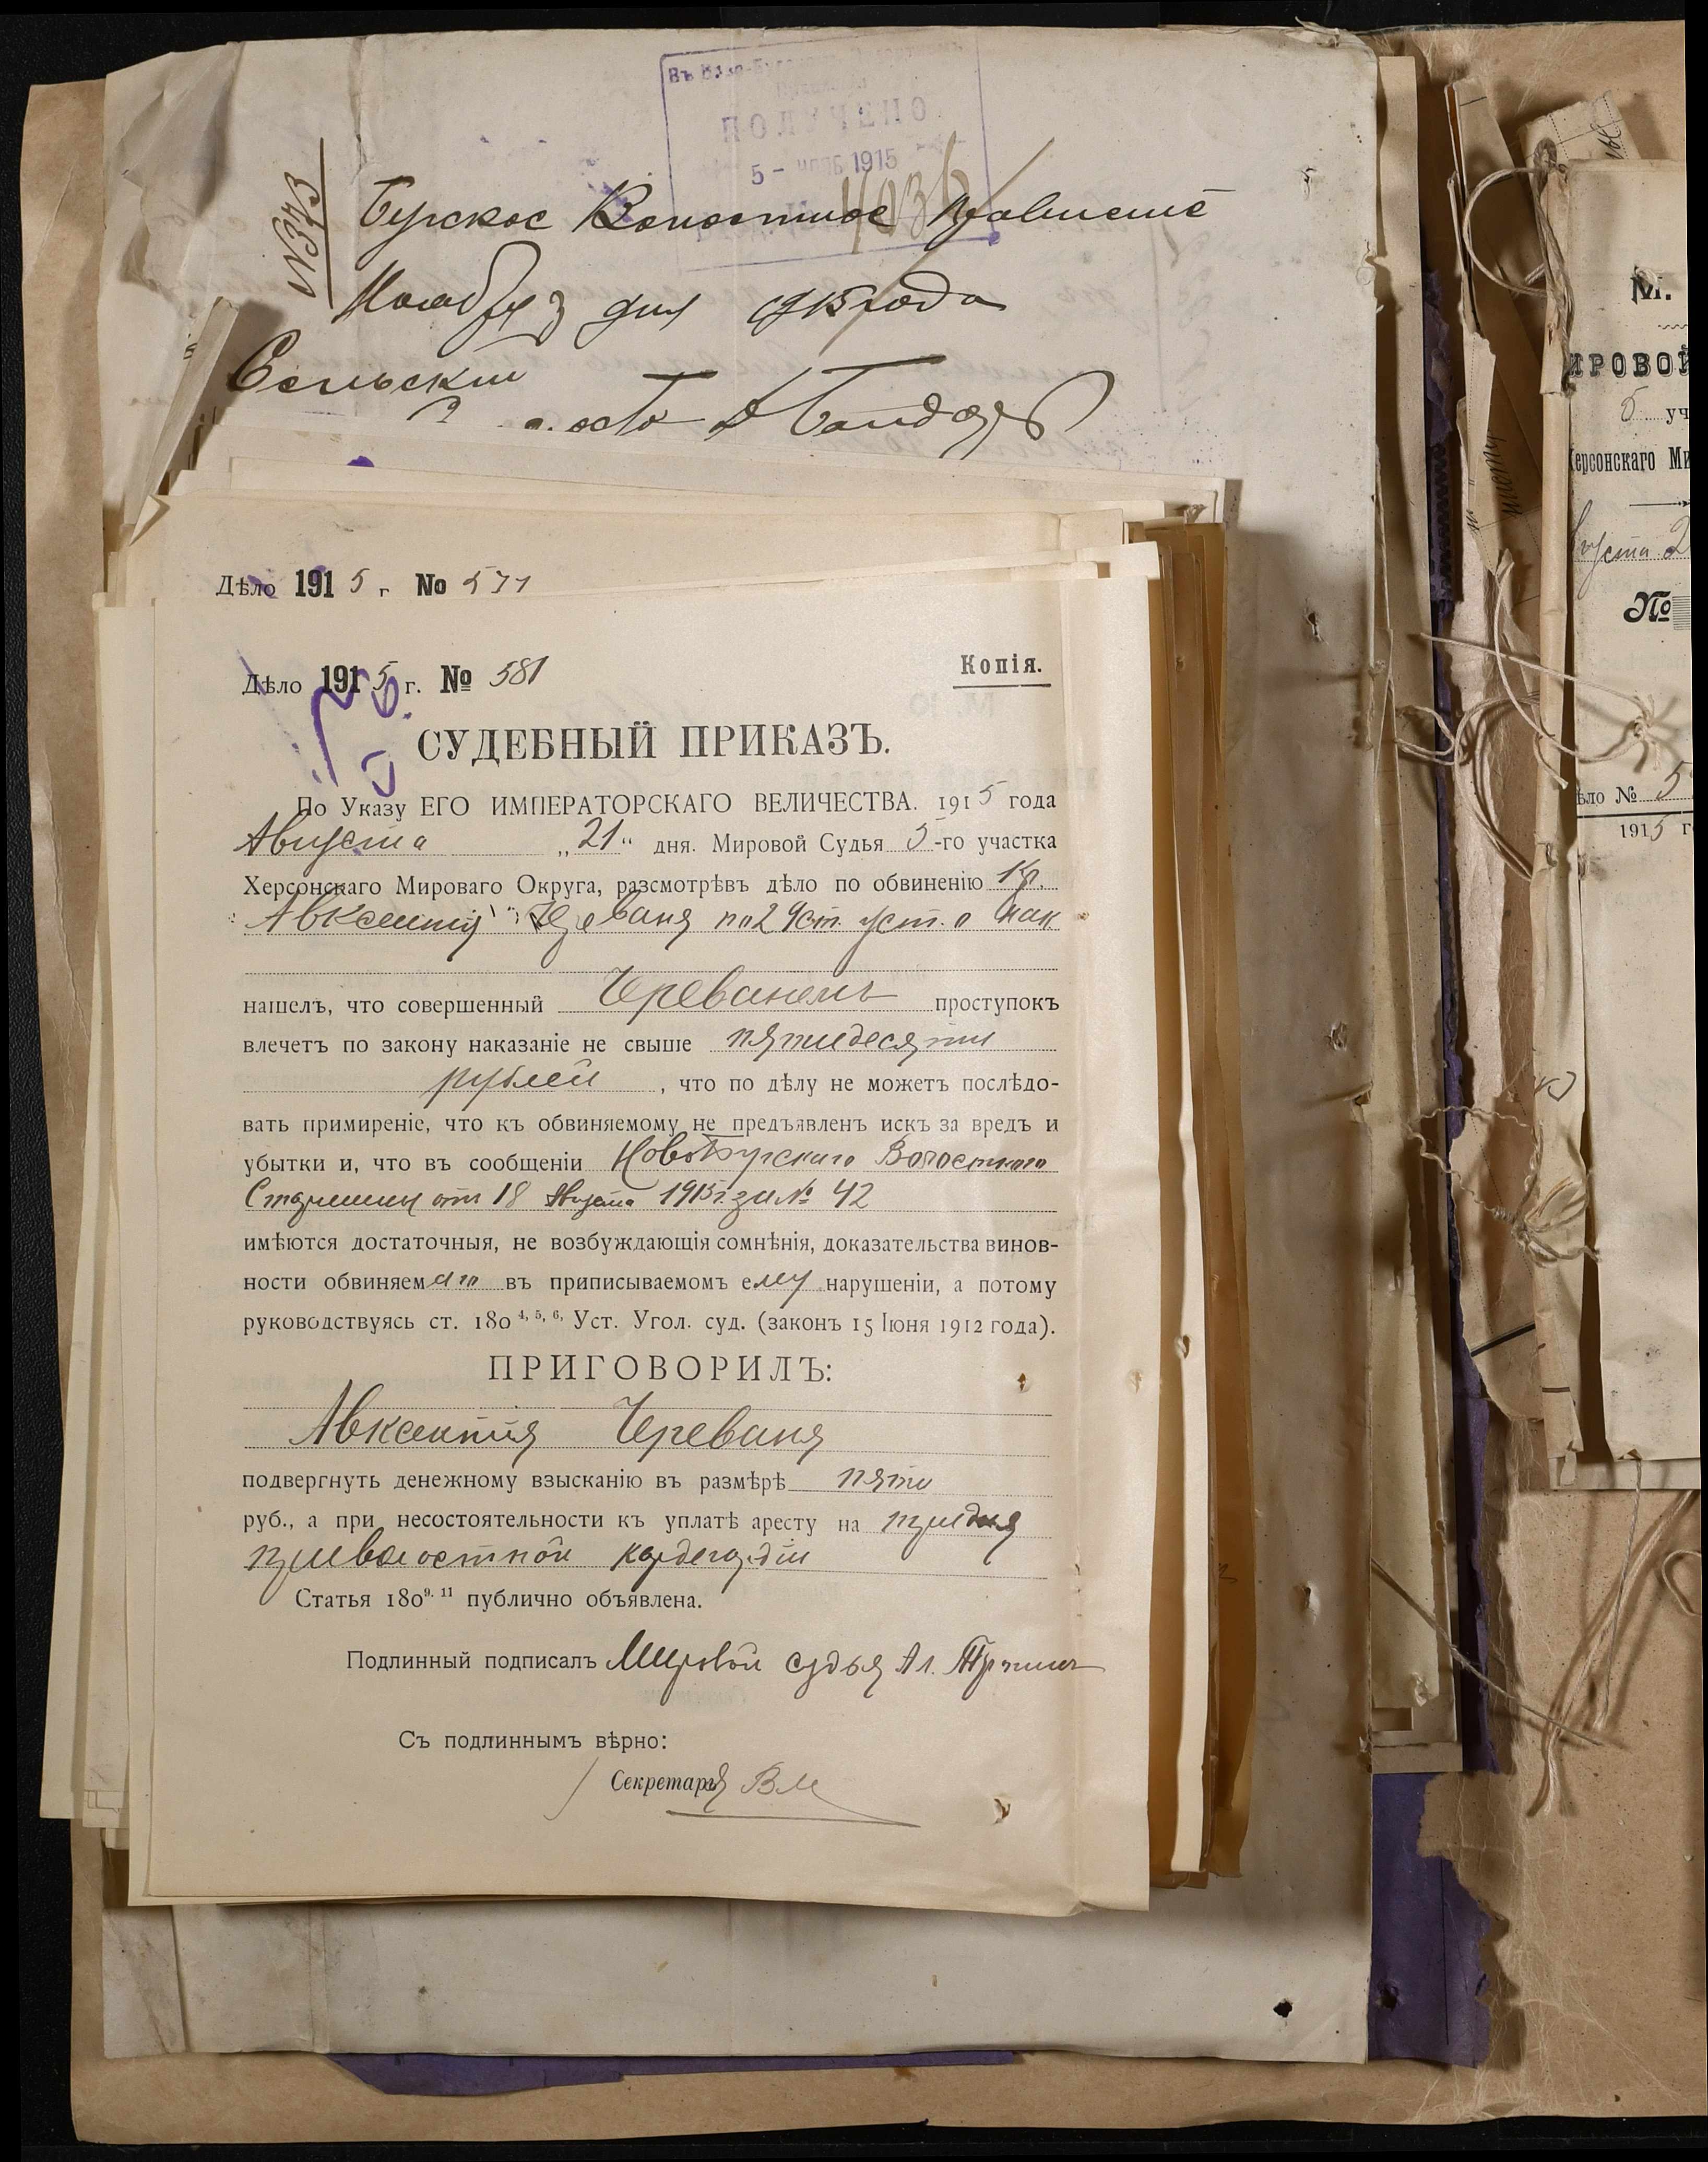 Въ Ново-Бугское Волостное
Правленіе
ПОЛУЧЕНО
5 - НОЯБ 1915
№ 4036
№373
Бугское Волостное Правленіе
Ноября 3 дня 1915 года
Сельскій
Дѣло 1915 г № 571
Дѣло 1915 г. № 581
Копія.
СУДЕБНЫЙ ПРИКАЗЪ.
По Указу ЕГО ИМПЕРАТОРСКАГО ВЕЛИЧЕСТВА. 1915 года
Августа „21“ дня. Мировой Судья 5-го участка
Херсонскаго Мироваго Округа, разсмотрѣвъ дѣло по обвиненію кр.
Авксентія Череваня по 2 ч ст. уст. о нак
нашелъ, что совершенный Череванемъ проступокъ
влечетъ по закону наказаніе не свыше пятидесяти
рублей, что по дѣлу не можетъ послѣдо-
вать примиреніе, что къ обвиняемому не предъявленъ искъ за вредъ и
убытки и, что въ сообщеніи НовоБугскаго Волостного
Старшины от 18 Августа 1915 г. за № 42
имѣются достаточныя, не возбуждающія сомнѣнія, доказательства винов-
ности обвиняемаго въ приписываемомъ ему нарушеніи, а потому
руководствуясь ст. 180 4, 5, 6, Уст. Угол. суд. (законъ 15 Іюня 1912 года).
ПРИГОВОРИЛЪ:
Авксентія Череваня
подвергнуть денежному взысканію въ размѣрѣ пяти
руб., а при несостоятельности къ уплатѣ аресту на три дня
при волостной кордегардіи
Статья 180 9. 11 публично объявлена.
Подлинный подписалъ Мировой судья Ал.
Съ подлиннымъ вѣрно:
Секретарь
М.
ИРОВОЙ
5 уч
Херсонскаго Ми
Августа 2
№
ѣло № 5
1915 г